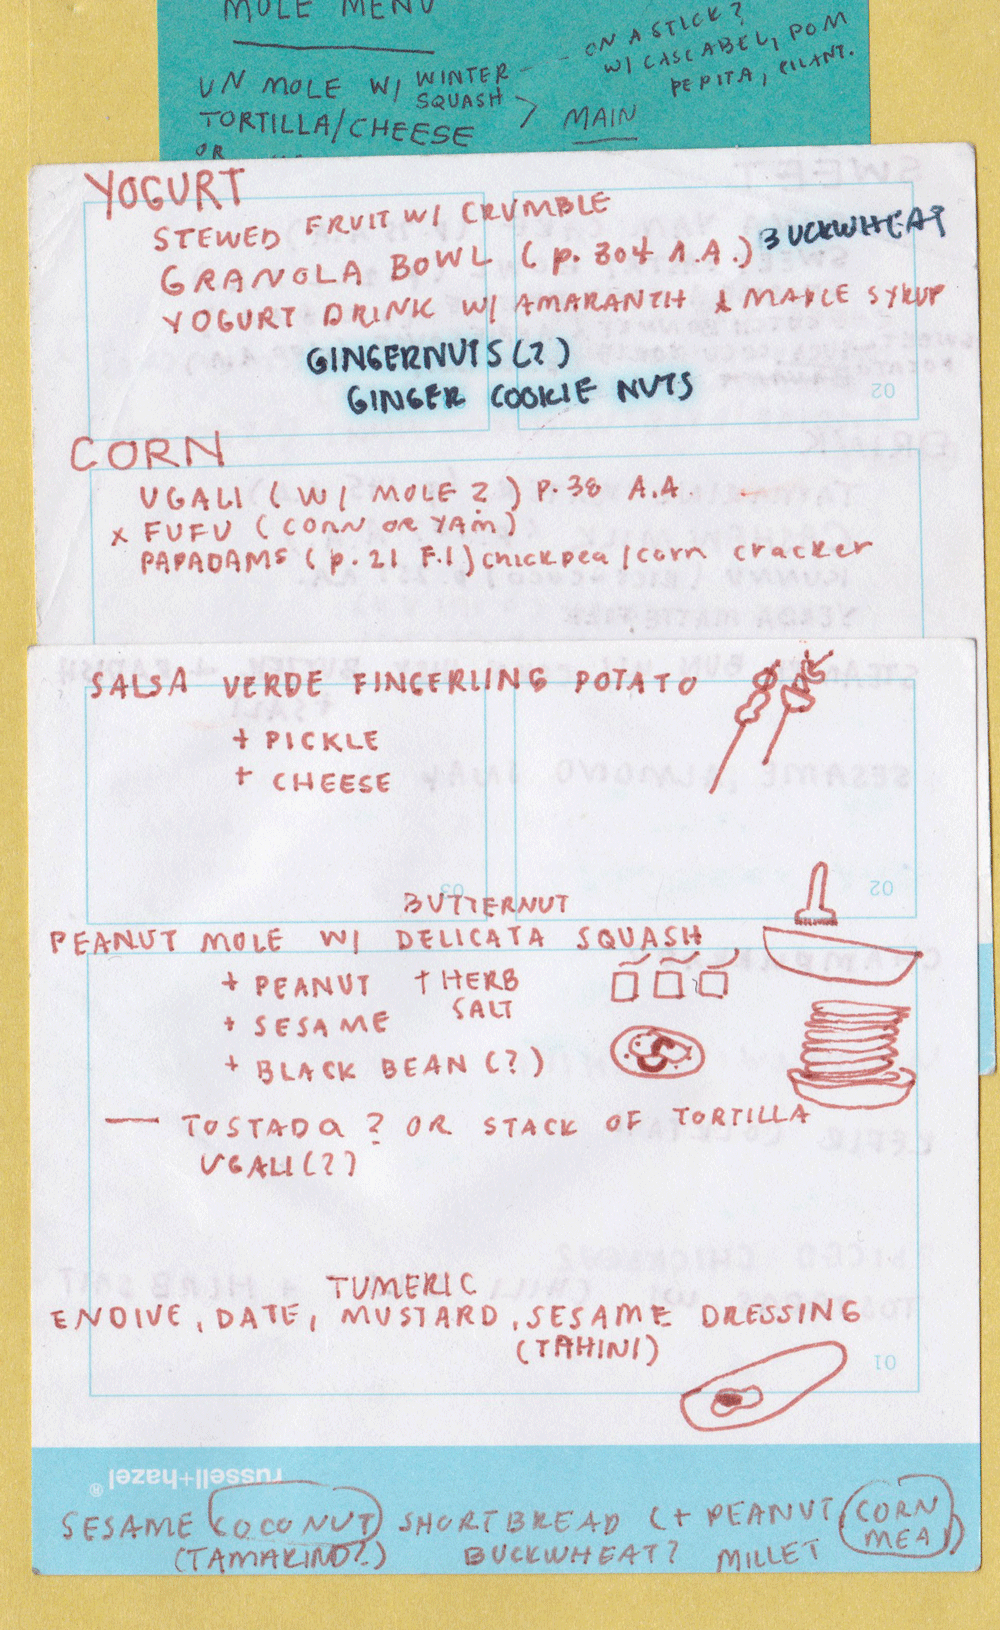 MOLE MENU
ON A STICK?
W/ CASCABEL, POM
PEPITA, CILANT.
UN MOLE W/ WINTER
SQUASH
TORTILLA/CHEESE
MAIN
OR
YOGURT
STEWED FRUIT W/ CRUMBLE
GRANOLA BOWL (p. 304 A.A.) BUCKWHEAT
YOGURT DRINK W/ AMARANTH & MAPLE SYRUP
GINGERNUTS(?)
GINGER COOKIE NUTS
CORN
UGALI (W/ MOLE?) P.38 A.A
x FUFU (CORN OR YAM)
PAPADAMS (p.21 F.I) chickpea/corn cracker
SALSA VERDE FINGERLING POTATO
+ PICKLE
+ CHEESE
BUTTERNUT
PEANUT MOLE W/ DELICATA SQUASH
+ PEANUT + HERB
SALT
+ SESAME
+ BLACK BEAN (?)
— TOSTADA? OR STACK OF TORTILLA
UGALI(?)
TUMERIC
ENDIVE, DATE, MUSTARD, SESAME DRESSING
(TAHINI)
01
russell+hazel®
SESAME COCONUT SHORTBREAD (+ PEANUT, CORN
MEAL)
(TAMARIND?) BUCKWHEAT? MILLET